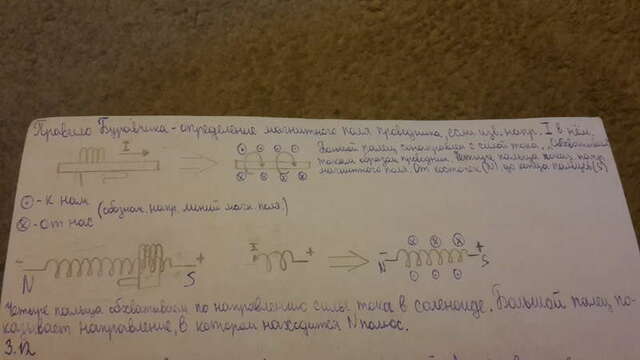 Правило Буравчика - определение магнитного поля проводника, если изв. напр. I в нём.
I
Большой палец сонаправляем с силой тока,
током образом проводник. Четыре пальца показ. напр.
магнитного поля. От костяшек (N) до конца пальцев (S)
⊙ - к нам
(обознач. напр. линий магн. поля.)
⊗ - от нас
- + I + - +
N S N S
Четыре пальца обхватываем по направлению силы тока в соленоиде. Большой палец по-
казывает направление, в котором находится N полюс.
3.12